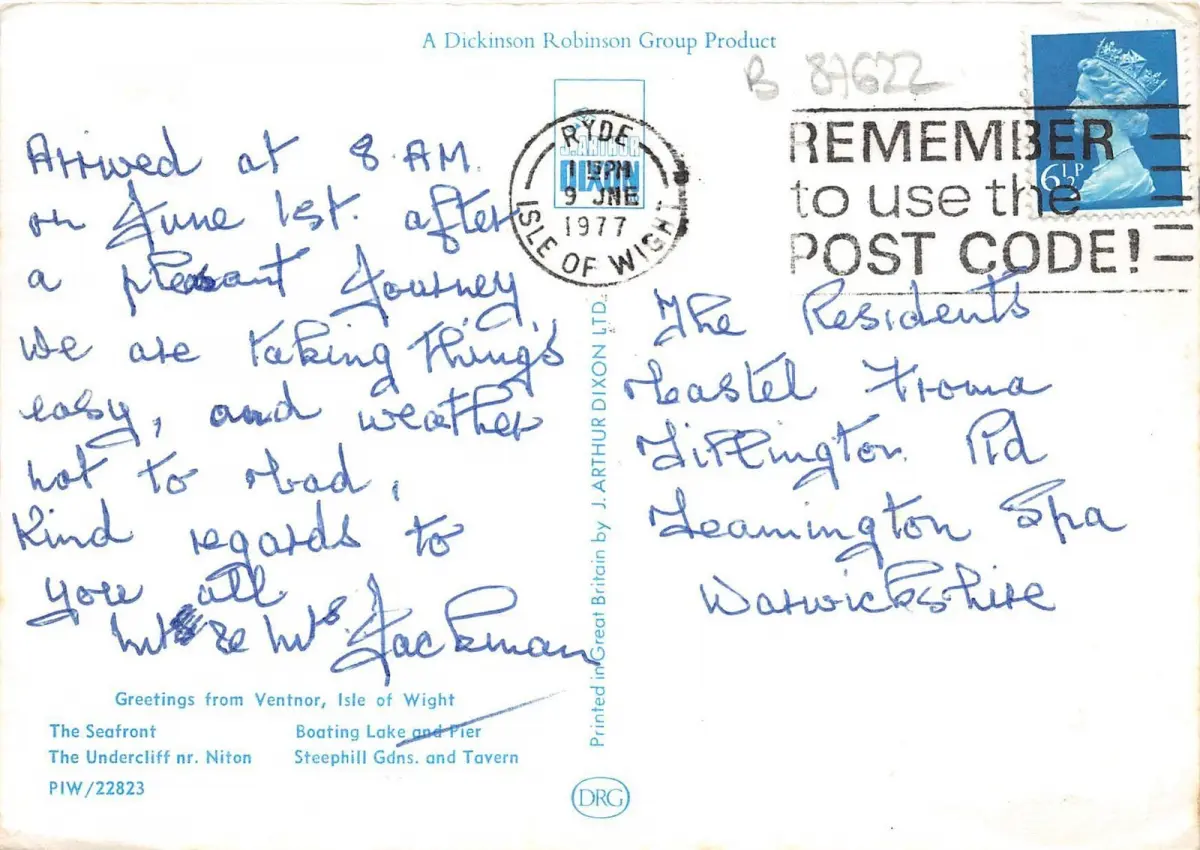 A Dickinson Robinson Group Product
B 87622
Arrived at 8 AM.
on June 1st. after
a pleasant Journey,
we are taking things
easy, and weather
not to bad,
Kind regards to
you all
Mr & Mrs Jackman
Greetings from Ventnor, Isle of Wight
The Seafront
Boating Lake and Pier
The Undercliff nr. Niton
Steephill Gdns. and Tavern
PIW/22823
J. ARTHUR
DIXON
RYDE
PM
9 JNE
1977
ISLE OF WIGHT
Printed in Great Britain by J. ARTHUR DIXON LTD.
DRG
6½P
REMEMBER
to use the
POST CODE!
The Residents
Lillington Rd
Leamington Spa
Warwickshire